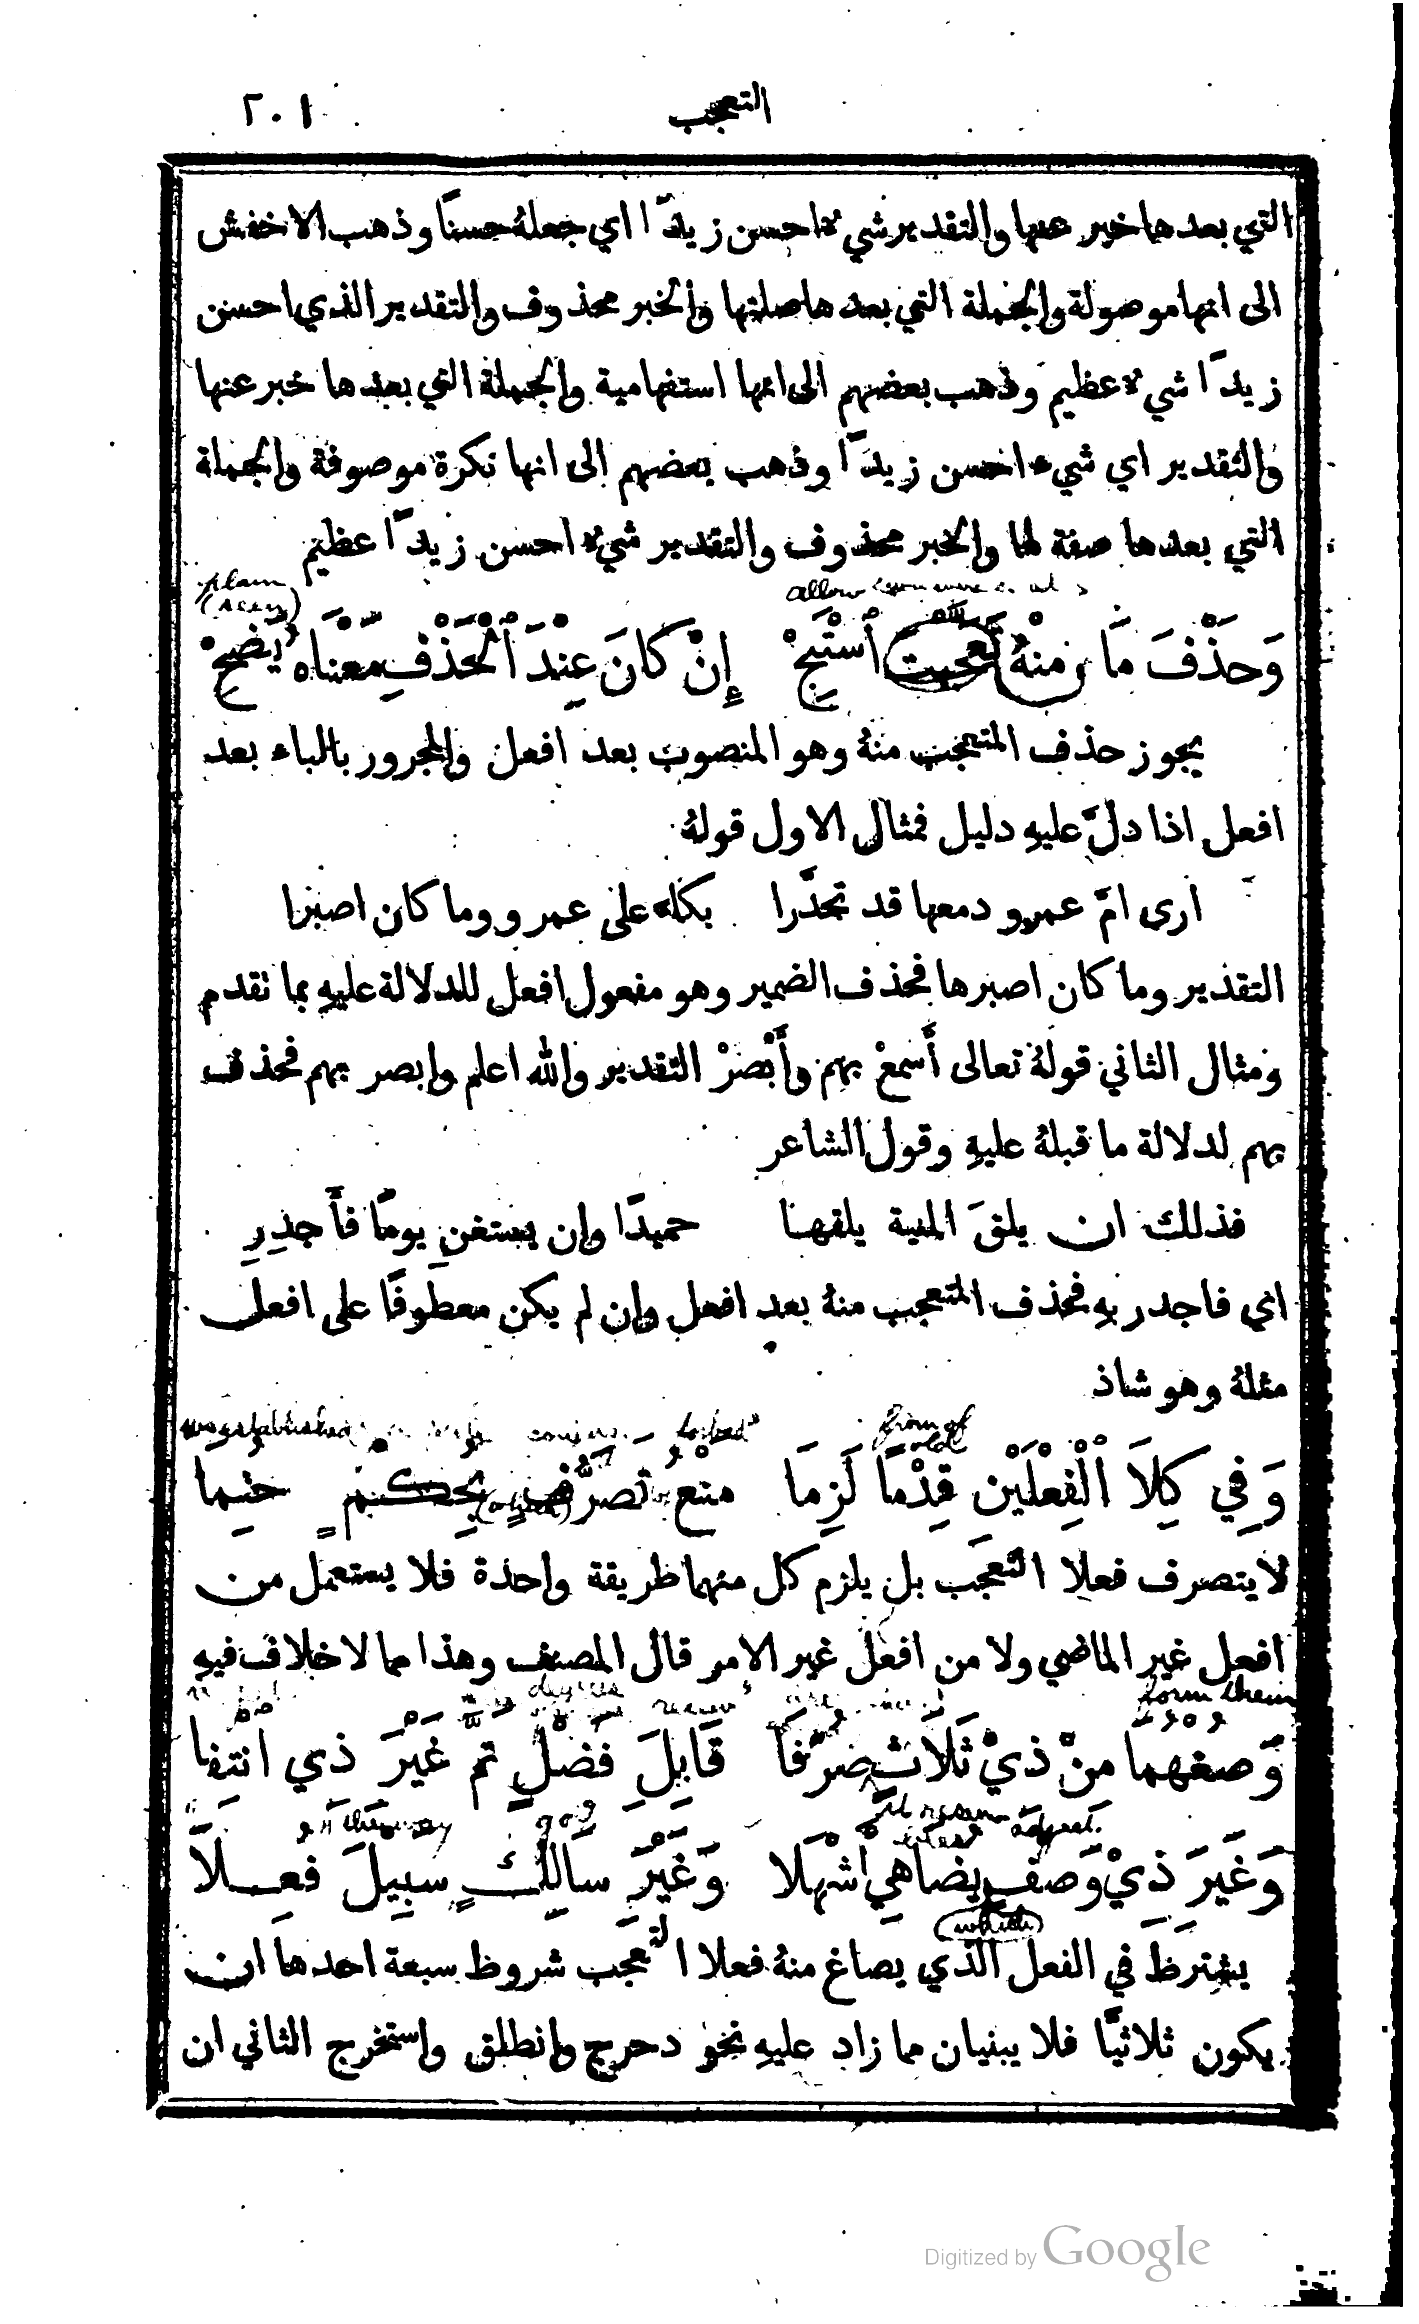 التعجب ٢٠١
التي بعدها خبر عنها والتقدير شيءٌ احسن زيدًا اي جعلهُ حسنًا وذهب الاخفش
الى انها موصولة والجملة التي بعدها صلتها والخبر محذوف والتقدير الذي احسن
زيدًا شيءٌ عظيم وذهب بعضهم الى انها استفهامية والجملة التي بعدها خبر عنها
والتقدير اي شيءٍ احسن زيدًا وذهب بعضهم الى انها نكرة موصوفة والجملة
التي بعدها صفة لها والخبر محذوف والتقدير شيءٌ احسن زيدًا عظيم
plain
allow
وَحَذْفَ مَا مِنْهُ تَعَجَّبْتَ ٱسْتَبِحْ إِنْ كَانَ عِنْدَ ٱلْحَذْفِ مَعْنَاهُ يَضِحْ
يجوز حذف المتعجب منهُ وهو المنصوب بعد افعل والمجرور بالباء بعد
افعل اذا دلَّ عليهِ دليل فمثال الاول قولهُ
ارى امَّ عمرو دمعها قد تحدَّرا بكاء على عمرو وما كان اصبرا
التقدير وما كان اصبرها فحذف الضمير وهو مفعول افعل للدلالة عليهِ بما نقدم
ومثال الثاني قولهُ تعالى أَسمعْ بهِم وأَبْصرْ التقدير والله اعلم وابصر بهم فحذف
بهم لدلالة ما قبلهُ عليهِ وقول الشاعر
فذلك ان يلقَ المنية يلقها حميدًا وان يستغنِ يومًا فأَجدِرِ
اي فاجدر بهِ فحذف المتعجب منهُ بعد افعل وان لم يكن معطوفًا على افعل
مثلهُ وهو شاذ
from of
old
وَفِي كِلَا ٱلْفِعْلَيْنِ قِدْمًا لَزِمَا مَنْعُ تَصَرُّفٍ بِحُكْمٍ حُتِمَا
لا يتصرف فعلا التعجب بل يلزم كل منهما طريقة واحدة فلا يستعمل من
افعل غير الماضي ولا من افعل غير الامر قال المصنف وهذا مما لا خلاف فيهِ
degrees
form them
وَصُغْهُمَا مِنْ ذِيْ ثَلَاثٍ صُرِّفَا قَابِلَ فَضْلٍ تَمَّ غَيْرَ ذِي انْتِفَا
وَغَيْرَ ذِيْ وَصْفٍ يُضَاهِي أَشْهَلَا وَغَيْرَ سَالِكٍ سَبِيلَ فُعِلَا
which
يشترط في الفعل الذي يصاغ منهُ فعلا التعجب شروط سبعة احدها ان
يكون ثلاثيًّا فلا يبنيان مما زاد عليهِ نحو دحرج وانطلق واستخرج الثاني ان
Digitized by Google